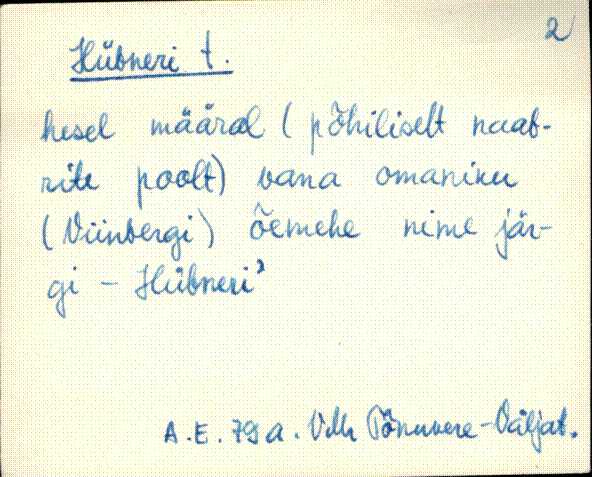 2
Hübneri t.
hesel määral ( põhiliselt naab-
rite poolt) vana omaniku
(Viinbergi) õemehe nime jär-
gi - Hübneri"
A.E. 79 a. Tõnuvere-Väljat.